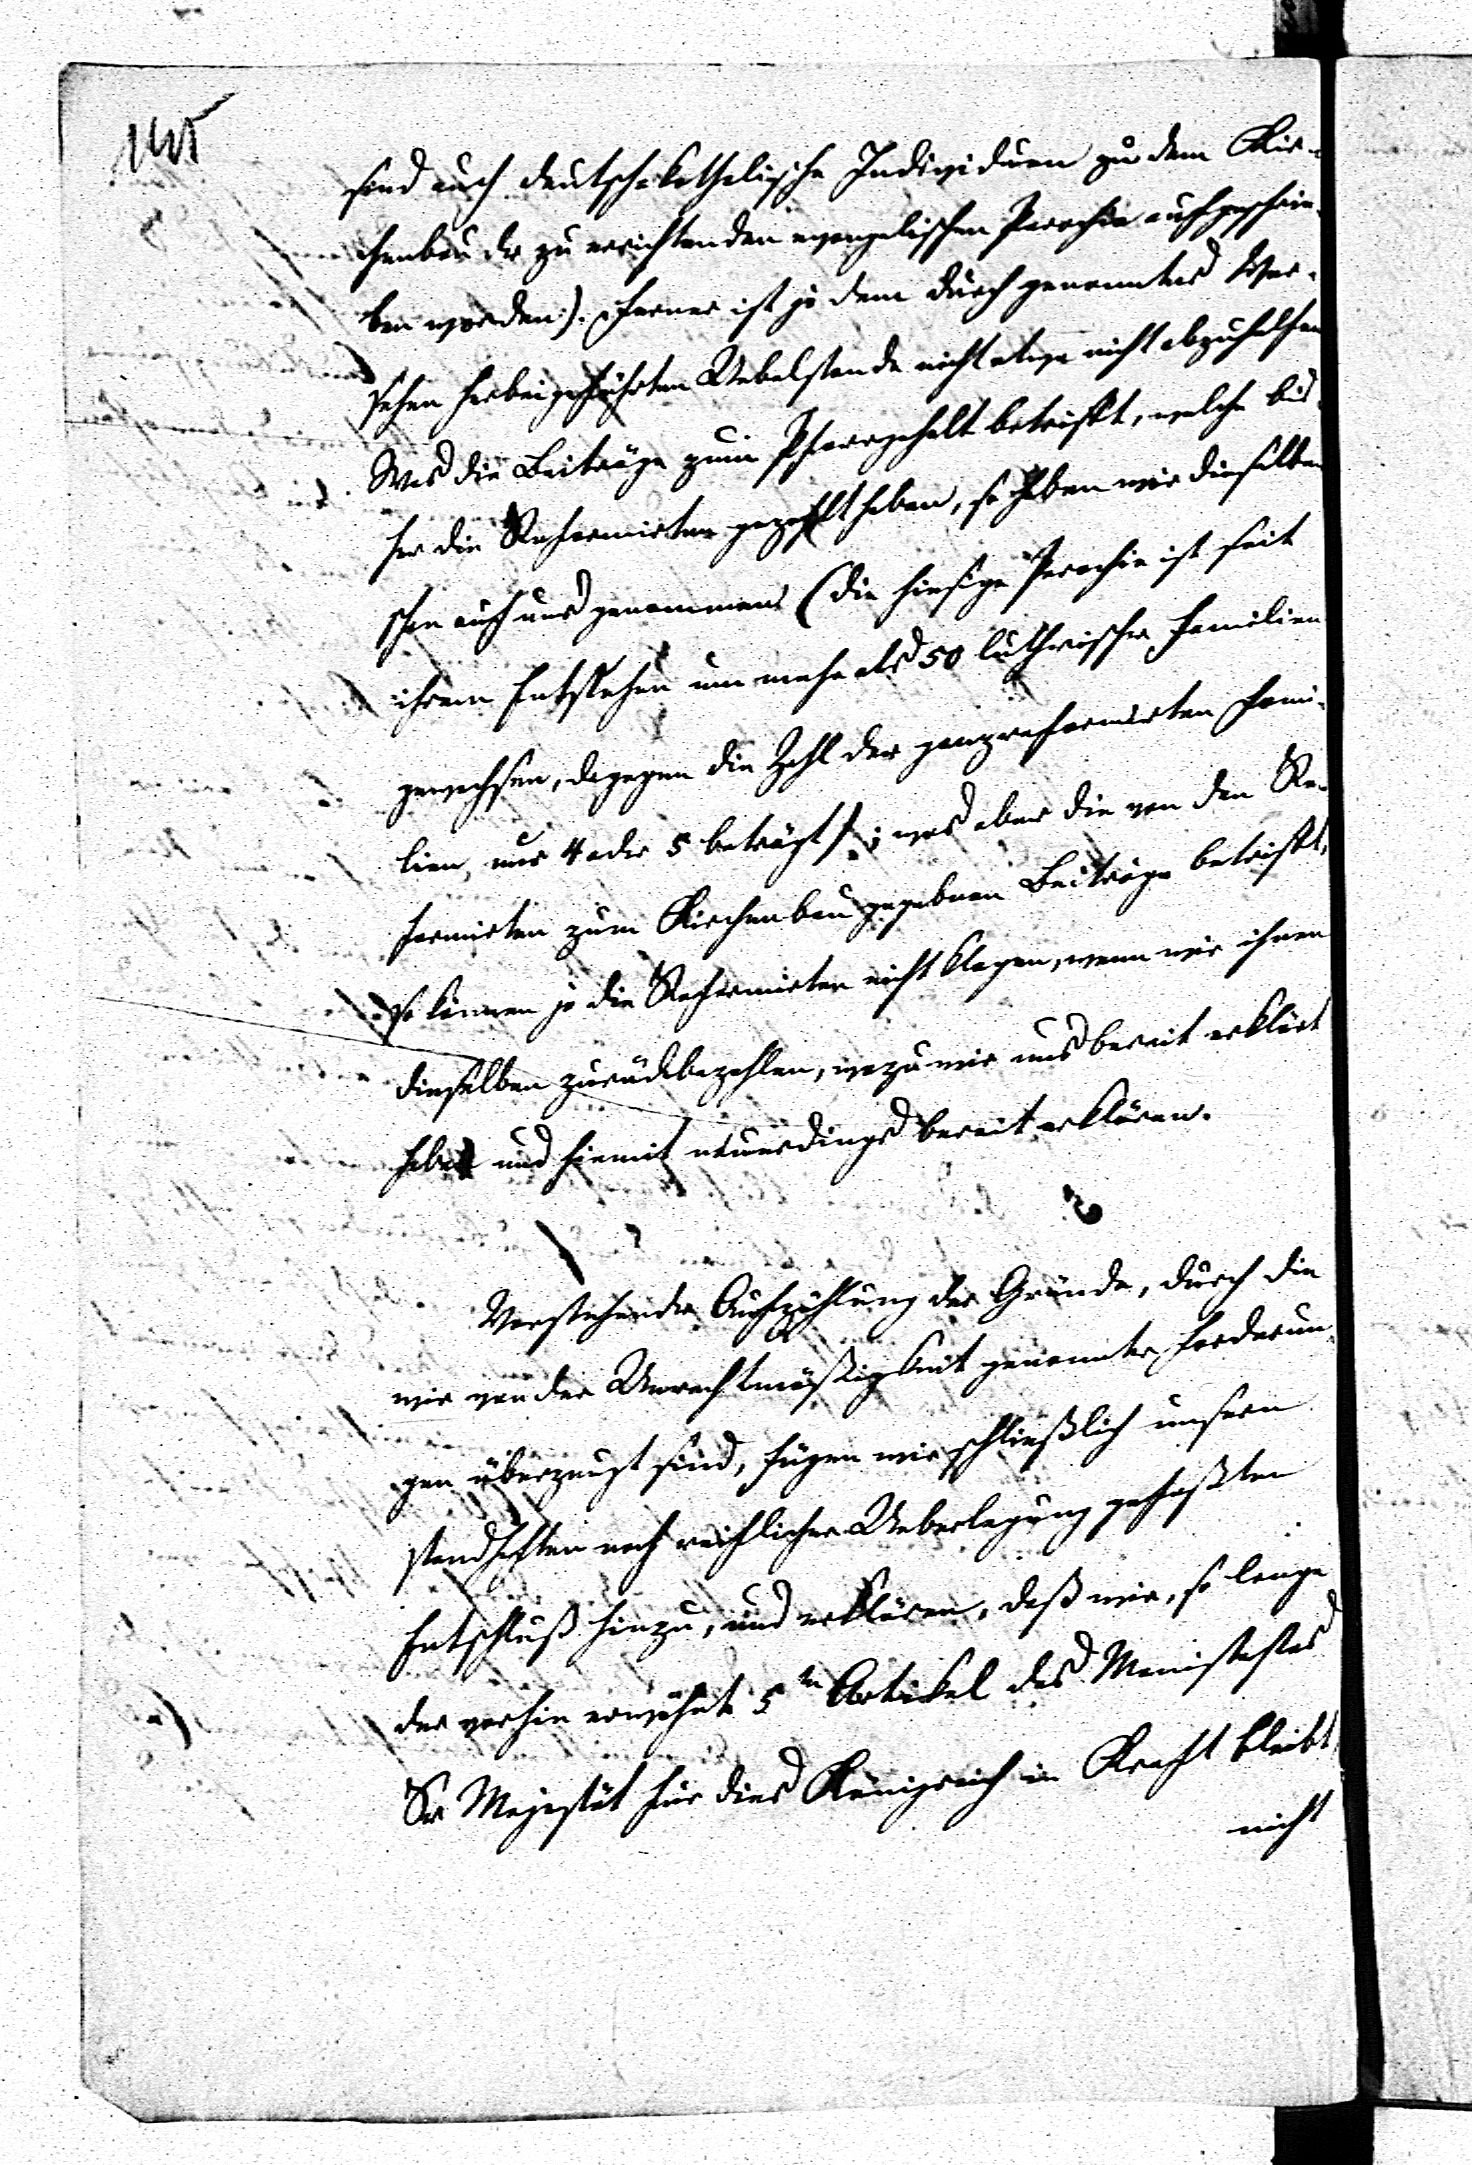 sind auch deutsch-katholische Individuen zu dem Kir-
chenbau der zu errichtenden evangelischen Parochie aufgeschrie-
ben worden). Ferner ist ja dem durch genanntes Ver-
sehen herbeigeführten Uebelstande nicht etwa nicht abzuhelfen
Was die Beiträge zum Pfarrgehalt betrifft, welche bis-
her die Reformirten gezahlt haben, so haben wir dieselben
schon auf uns genommen (die hiesige Parochie ist seit
ihrem Entstehen um mehr als 50 luthrische Familien
gewachsen, dagegen die Zahl der ganzreformirten Fami-
lien, nur 4 oder 5 beträgt); was aber die von den Re-
formirten zum Kirchenbau gegebnen Beiträge betrifft,
so können ja die Reformirten nicht klagen, wenn wir ihnen
dieselben zurückbezahlen, wozu wir uns bereit erklärt
haben und hiemit neuerdings bereit erklären.
Vorstehender Aufzählung der Gründe, durch die
wir von der Unrechtmäßigkeit genannter Forderun-
gen überzeugt sind, fügen wir schließlich unsern
standhaften nach reiflicher Ueberlegung gefaßten
Entschluß hinzu, und erklären, daß wir, so lange
der vorhin erwähnte 5te Artikel des Manifestes
Sr Majestät für dies Königreich in Kraft bleibt,
nicht